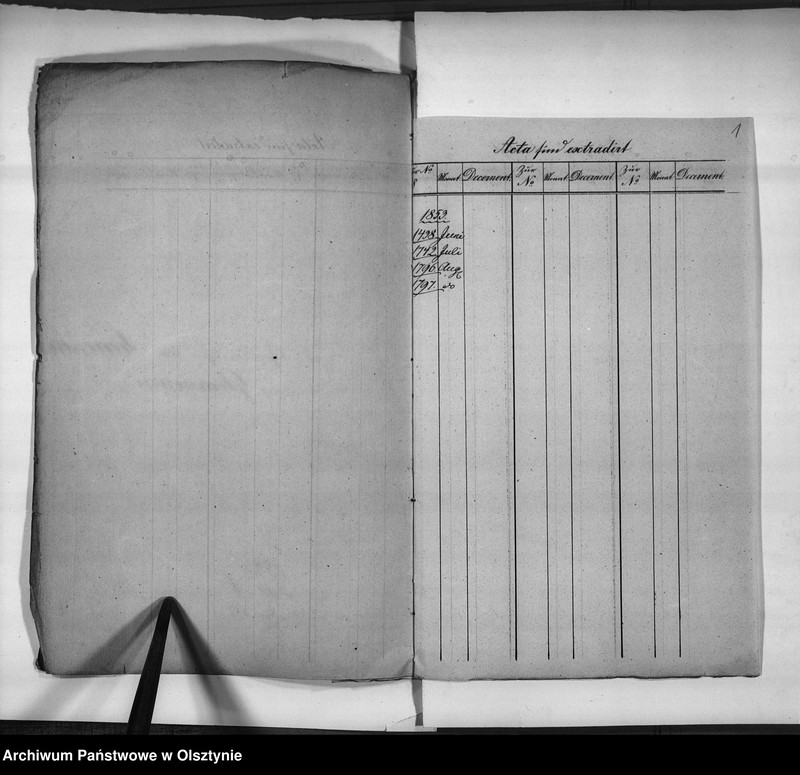 1
Acta sind extradirt
Zur No Monat Decernent Zur No Monat Decernent Zur No Monat Decernent
1853.
1438. Juni
1742. Juli
1790. Aug
1797. do
Archiwum Państwowe w Olsztynie